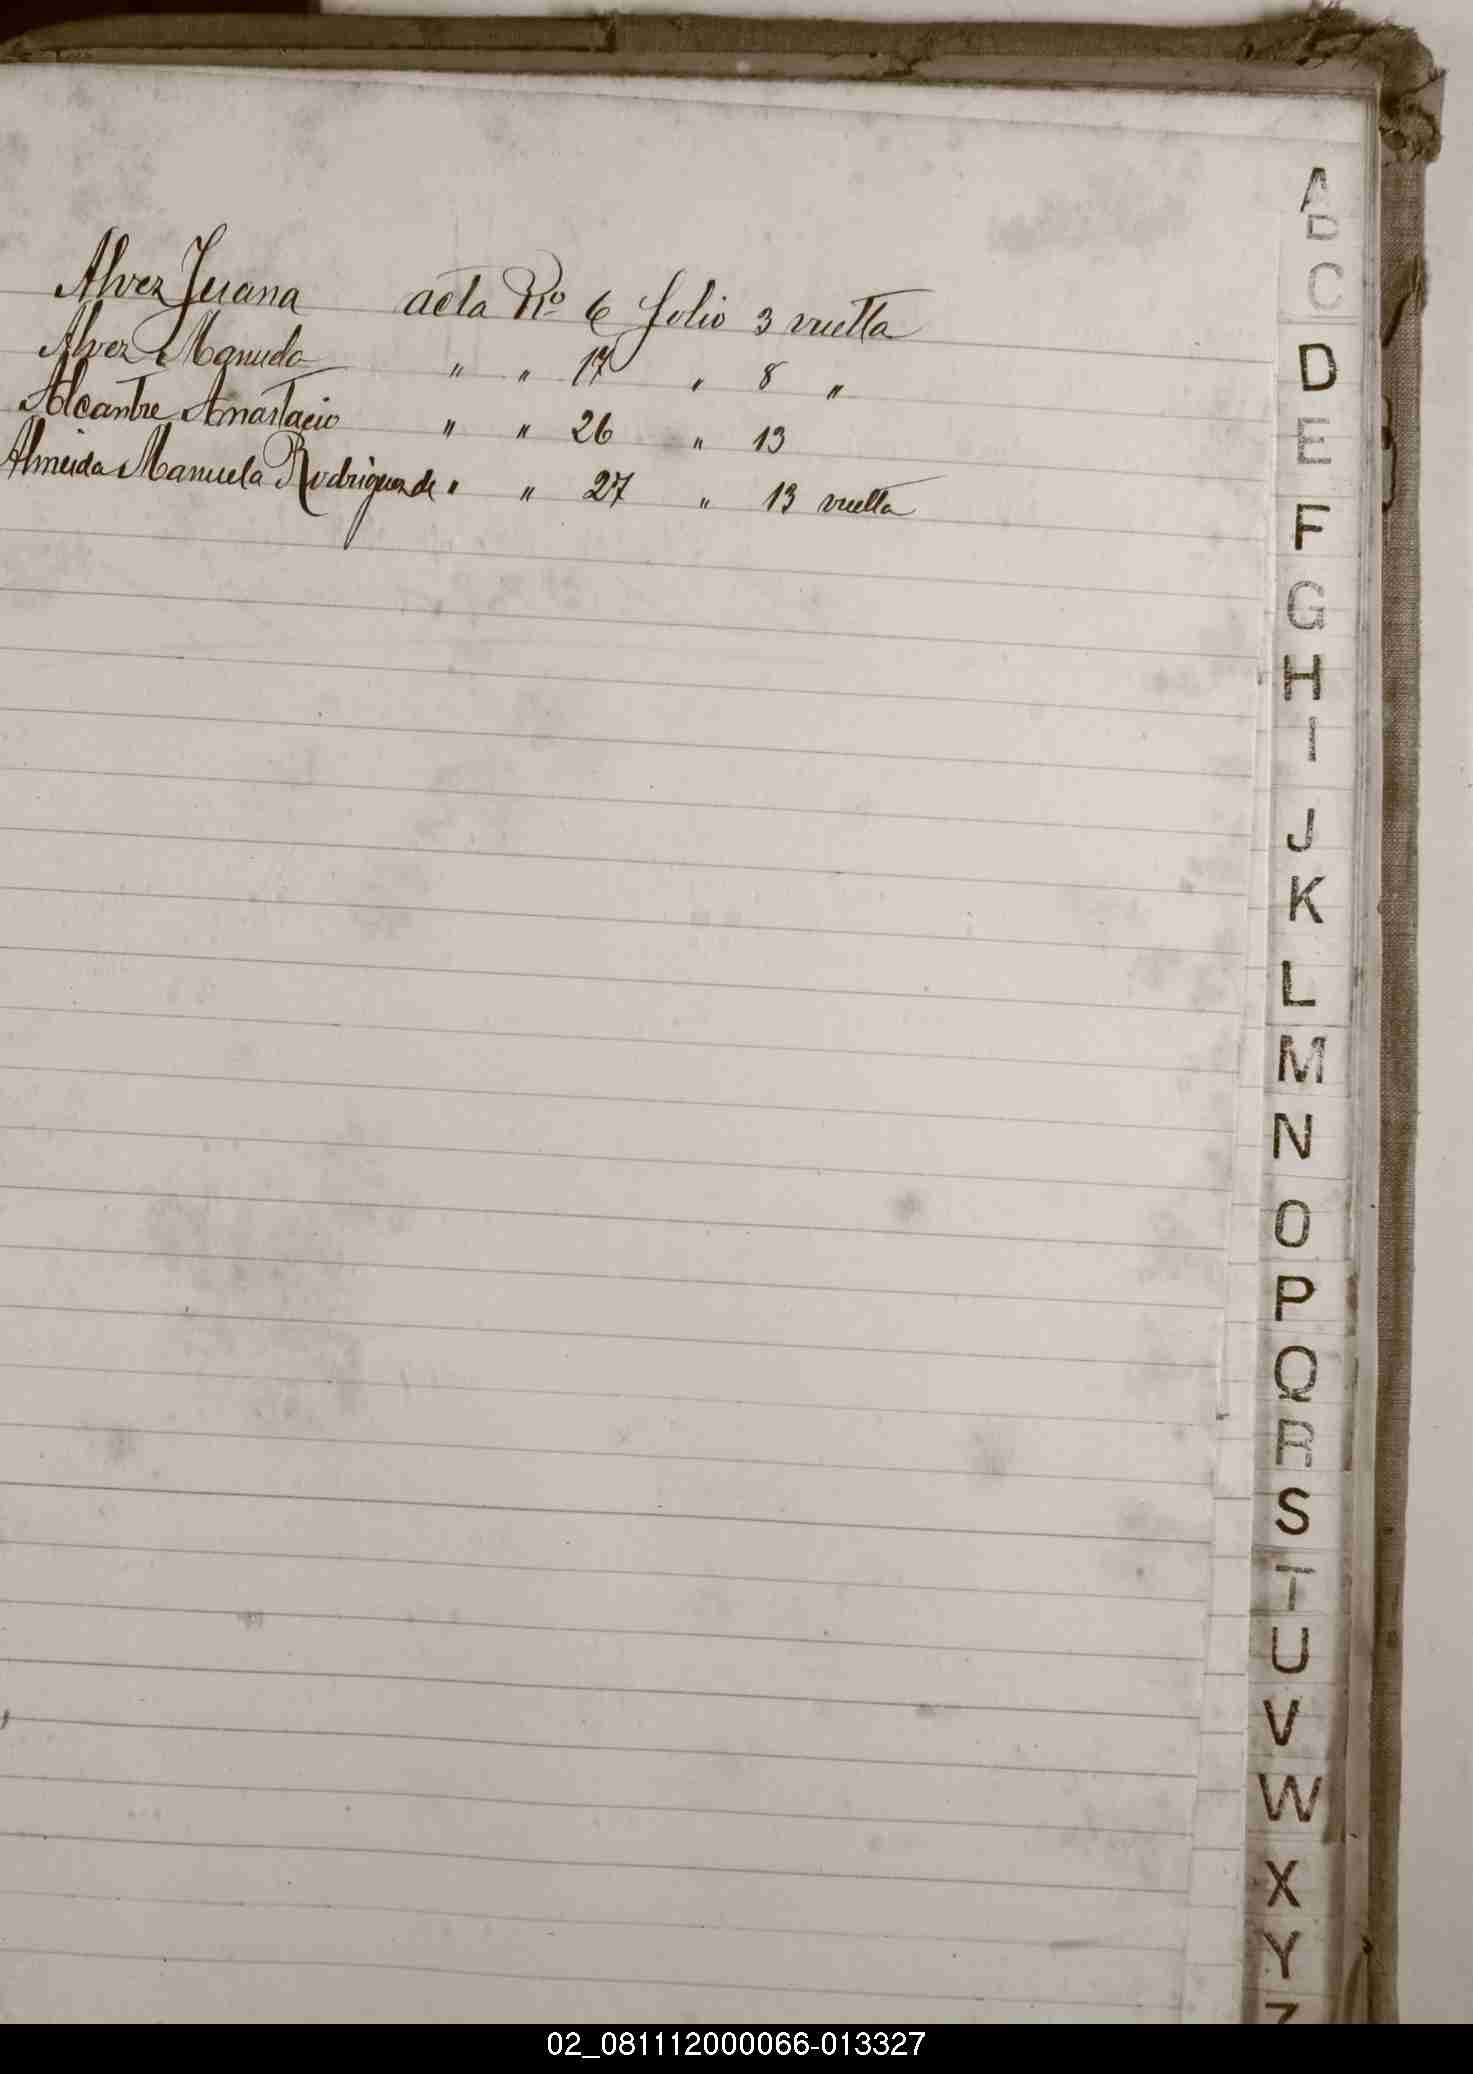 Alvez Juana acta No 6 folio 3 vuelta
Alvez Manuela " " 17 " 8 "
Alcantre Anastacio " " 26 " 13
Almeida Manuela Rodriguez de " " 27 " 13 vuelta
A
B
C
D
E
F
G
H
I
J
K
L
M
N
O
P
Q
R
S
T
U
V
W
X
Y
Z
02_081112000066-013327